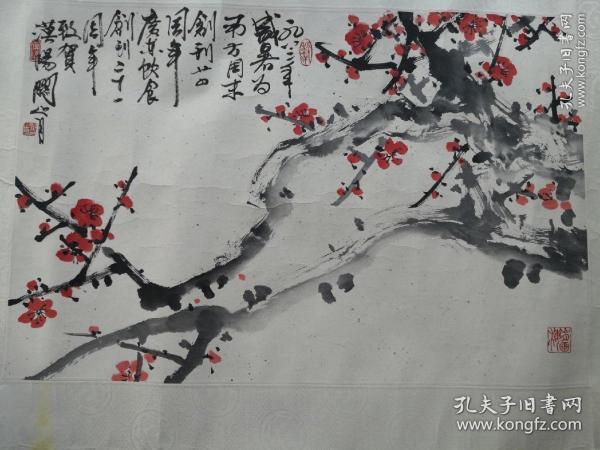 盛暑為
南方周末
創刊
周年
廣东飲食
創刊二十一
周年
致賀
漠陽關山月
孔夫子旧书网
www.kongfz.com
孔夫子旧书网
www.kongfz.com